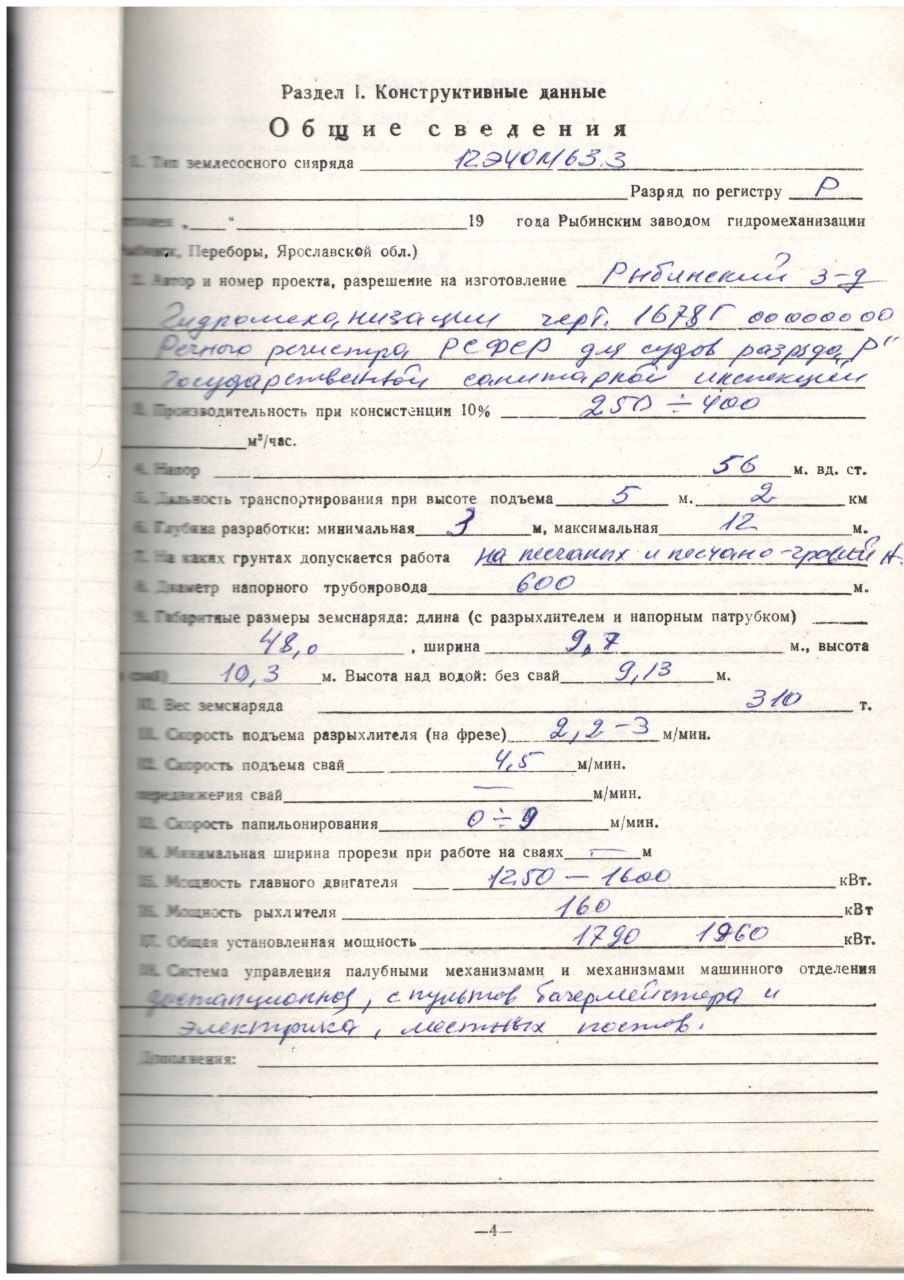 Раздел I. Конструктивные данные
Общие сведения
1. Тип землесосного сняряда 12Э40М63.3
Разряд по регистру Р
„ “ 19 года Рыбинским заводом гидромеханизации
Переборы, Ярославской обл.)
2. Автор и номер проекта, разрешение на изготовление Рыбинский з-д
Гидромеханизации черт. 1678Г 00000000
Речного регистра РСФСР для судов разряда „Р"
Государственной санитарной инспекции
3. Производительность при консистенции 10% 250 ÷ 400
м³/час.
4. Напор 56 м. вд. ст.
5. Дальность транспортирования при высоте подъема 5 м. 2 км
6. Глубина разработки: минимальная 3 м, максимальная 12 м.
7. На каких грунтах допускается работа на песчаных и песчано-гравий
8. Диаметр напорного трубопровода 600 м.
9. Габаритные размеры земснаряда: длина (с разрыхлителем и напорным патрубком)
48,0 , ширина 9,7 м., высота
свай) 10,3 м. Высота над водой: без свай 9,13 м.
10. Вес земснаряда 310 т.
11. Скорость подъема разрыхлителя (на фрезе) 2,2-3 м/мин.
12. Скорость подъема свай 4,5 м/мин.
передвижения свай — м/мин.
13. Скорость папильонирования 0 ÷ 9 м/мин.
14. Минимальная ширина прорези при работе на сваях — м
15. Мощность главного двигателя 1250 — 1600 кВт.
16. Мощность рыхлителя 160 кВт
17. Общая установленная мощность 1790 1960 кВт.
18. Система управления палубными механизмами и механизмами машинного отделения
дистанционная, с пультов багермейстера и
электрика, местных постов.
Дополнения:
—4—